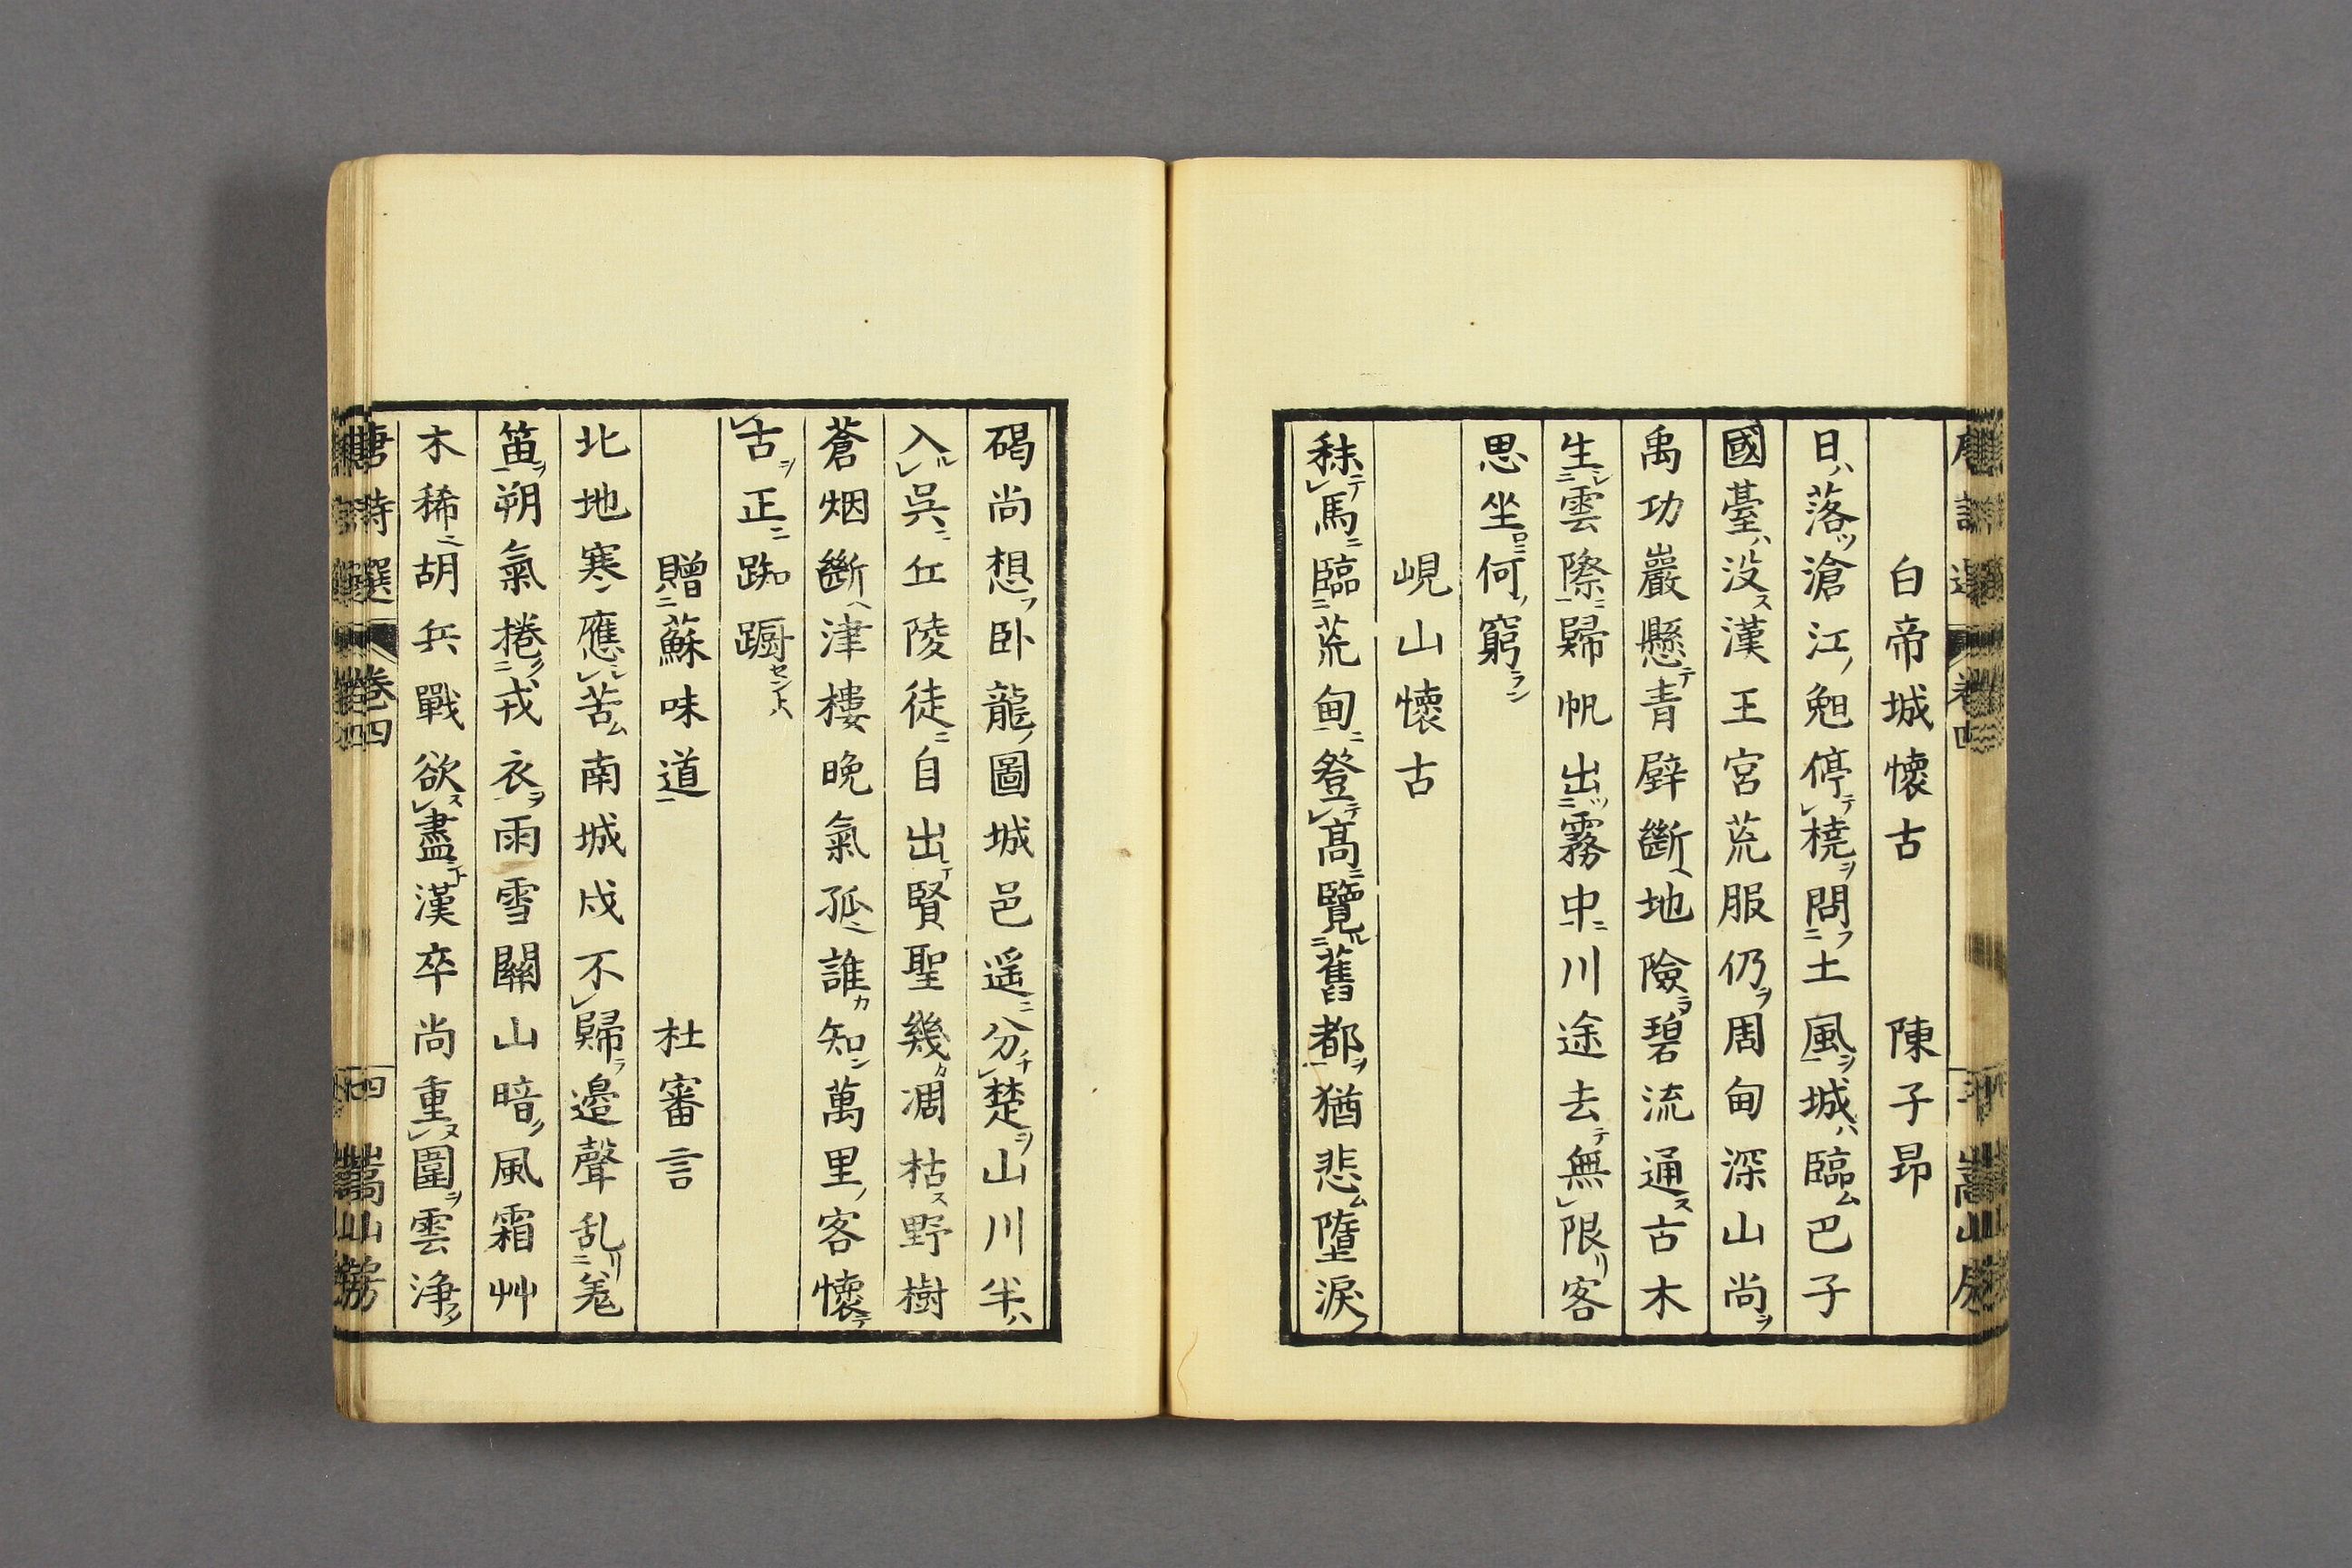 白帝城懷古 陳子昂
日落滄江晚停橈問土風城臨巴子
國臺沒漢王宮荒服仍周甸深山尚
禹功巖懸青壁斷地險碧流通古木
生雲際歸帆出霧中川途去無限客
思坐何窮
峴山懷古
秣馬臨荒甸登高覽舊都猶悲墮淚
碣尚想卧龍圖城邑遥分楚山川半
入吳丘陵徒自出賢聖幾凋枯野樹
蒼烟斷津樓晚氣孤誰知萬里客懷
古正踟蹰
贈蘇味道 杜審言
北地寒應苦南城戍不歸邊聲乱羗
笛朔氣捲戎衣雨雪關山暗風霜艸
木稀胡兵戰欲盡漢卒尚重圍雲淨
唐詩選 卷四 四 嵩山房